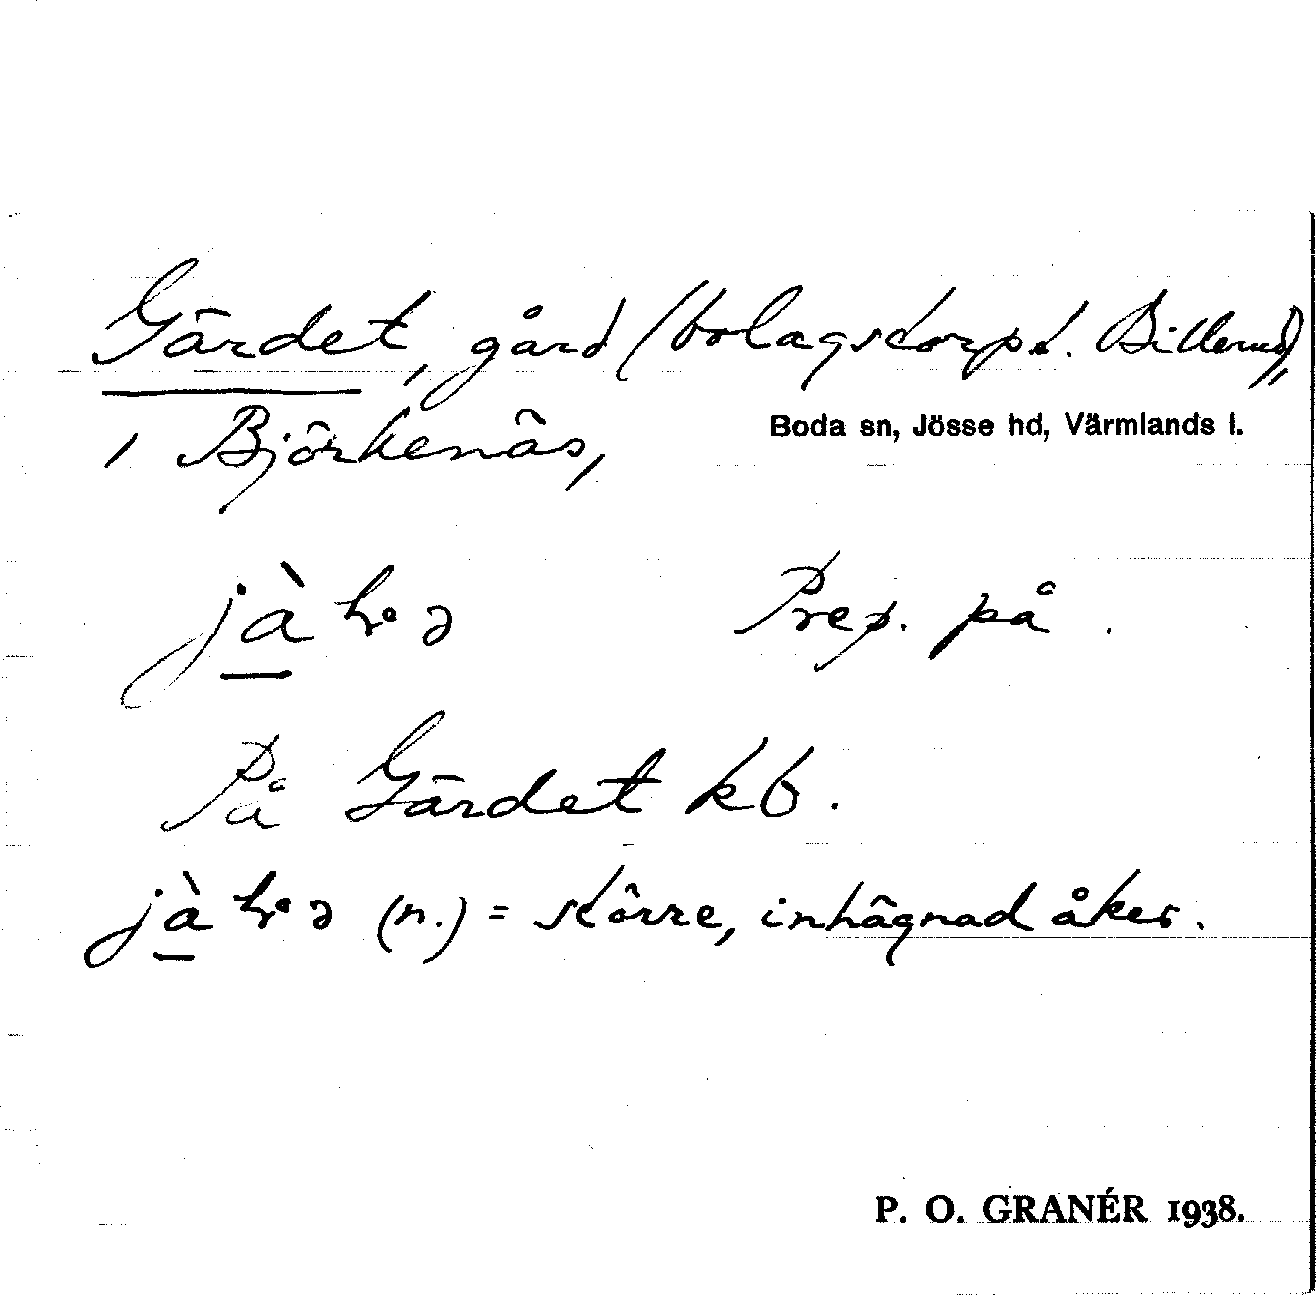 Gärdet, gård (bolagstorp t. Billerud),
i Björkenäs,
Boda sn, Jösse hd, Värmlands l.
Prep. på.
På Gärdet kb.
(n.) = större, inhägnad åker.
P. O. GRANÉR 1938.